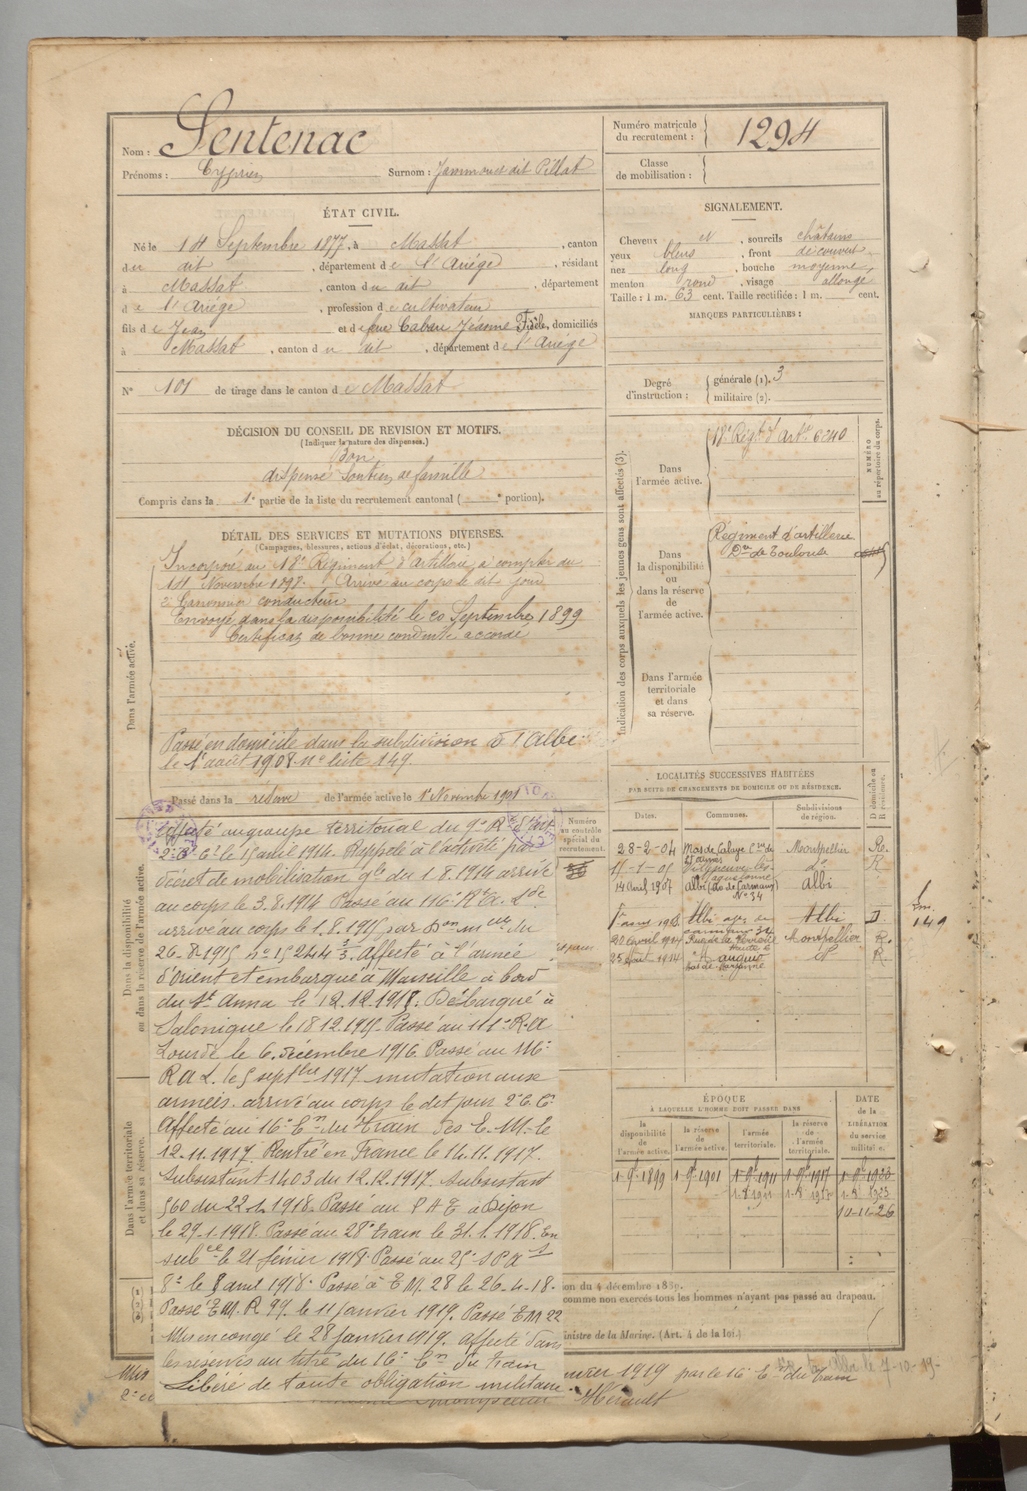 Nom : Sentenac
Prénoms : Cyprien Surnom : dit Pillat
Numéro matricule du recrutement : 1294
Classe de mobilisation :
ÉTAT CIVIL.
Né le 14 Septembre 1877, à Massat, canton
du dit, département de l'Ariége, résidant
à Massat, canton du dit, département
de l'Ariége, profession de cultivateur
fils de Jean et de feue Cabau Jérôme Fisèle, domiciliés
à Massat, canton du dit, département de l'Ariége
N° 101 de tirage dans le canton de Massat
DÉCISION DU CONSEIL DE REVISION ET MOTIFS.
(Indiquer la nature des dispenses.)
Bon
dispensé Soutien de famille
Compris dans la 1e partie de la liste du recrutement cantonal ( e portion).
DÉTAIL DES SERVICES ET MUTATIONS DIVERSES.
(Campagnes, blessures, actions d'éclat, décorations, etc.)
Dans l'armée active.
Incorporé au 18e Régiment d'artillerie à compter du
14 Novembre 1898. Arrivé au corps le dit jour
2e Canonnier conducteur
Envoyé dans la disponibilité le 20 Septembre 1899
Certificat de bonne conduite accordé
Passé en domicile dans la subdivision d'Albi
le 1e août 1908. no liste 149.
Passé dans la réserve de l'armée active le 1e Novembre 1901
Dans la disponibilité ou dans la réserve de l'armée active.
Affecté au groupe territorial du 9e R d'Art
2e C. Ct le 15 avril 1914. Rappelé à l'activité par
décret de mobilisation gle du 1.8.1914 arrivé
au corps le 3.8.1914 Passé au 116e R.A. Lde
arrivé au corps le 1.8.1915 par
26.8.1915 no 15244 3/3. Affecté à l'armée
d'Orient et embarqué à Marseille à bord
du Ste Anna le 12.12.1915. Débarqué à
Salonique le 18 12.1915. Passé au 111e R.A
Lourde le 6. Décembre 1916. Passé au
R A L. le 5 septbre 1917 mutation aux
armées. arrivé au corps le dit jour 2e C. Ct
Affecté au 16e Em du Train des E. M. le
12.11.1917. Rentré en France le 14.11.1917.
Subsistant 1403 du 12.12.1917. subsistant
560 du 22.1.1918. Passé au P A E à Dijon
le 29.1.1918. Passé au 28e train le 31.1.1918. En
subce le 21 février 1918. Passé au 25e
8e le 8 avril 1918. Passé à E M. 28 le 26.4.18.
Passé E M. R 97. le 11 Janvier 1919. Passé E M 22
Mis en congé le 28 Janvier 1919. affecté dans
les réserves au titre du 16e Em du Train
Libéré de toute obligation militaire
Dans l'armée territoriale et dans sa réserve.
SIGNALEMENT.
Cheveux et, sourcils châtains
yeux bleus, front découvert
nez long, bouche moyenne
menton rond, visage allongé
Taille : 1 m. 63 cent. Taille rectifiée : 1 m. cent.
MARQUES PARTICULIÈRES :
Degré d'instruction : générale (1). 3
militaire (2).
Indication des corps auxquels les jeunes gens sont affectés (3).
NUMÉRO au répertoire du corps.
Dans l'armée active.
18e Régt d'artie 6240
Dans la disponibilité ou dans la réserve de l'armée active.
Régiment d'artillerie
Don de Toulouse
Dans l'armée territoriale et dans sa réserve.
LOCALITÉS SUCCESSIVES HABITÉES
PAR SUITE DE CHANGEMENTS DE DOMICILE OU DE RÉSIDENCE.
Numéro au contrôle spécial du recrutement.
Dates. Communes. Subdivisions de région. D domicile ou R résidence.
28-2-04 Montpellier R.
15-1-05 Villeneuve-les- do R
14 Avril 1907 Albi (de Carmaux) No 34 Albi
1er août 1908 Albi Albi D.
20 avril 1914 Montpellier R.
25 août 1914 R.
149
ÉPOQUE
À LAQUELLE L'HOMME DOIT PASSER DANS
la disponibilité de l'armée active. la réserve de l'armée active. l'armée territoriale. la réserve de l'armée territoriale. DATE de la LIBÉRATION du service militaire.
1-9-1899 1-9bre-1901 1-9bre-1911 1-9bre-1917 1-9bre-1923
10-11-26
ion du 4 décembre 1889.
comme non exercés tous les hommes n'ayant pas passé au drapeau.
inistre de la Marine. (Art. 4 de la loi.)
Mis
nvier 1919 par le 16e Em du train
le 7-10-19-
Hérault